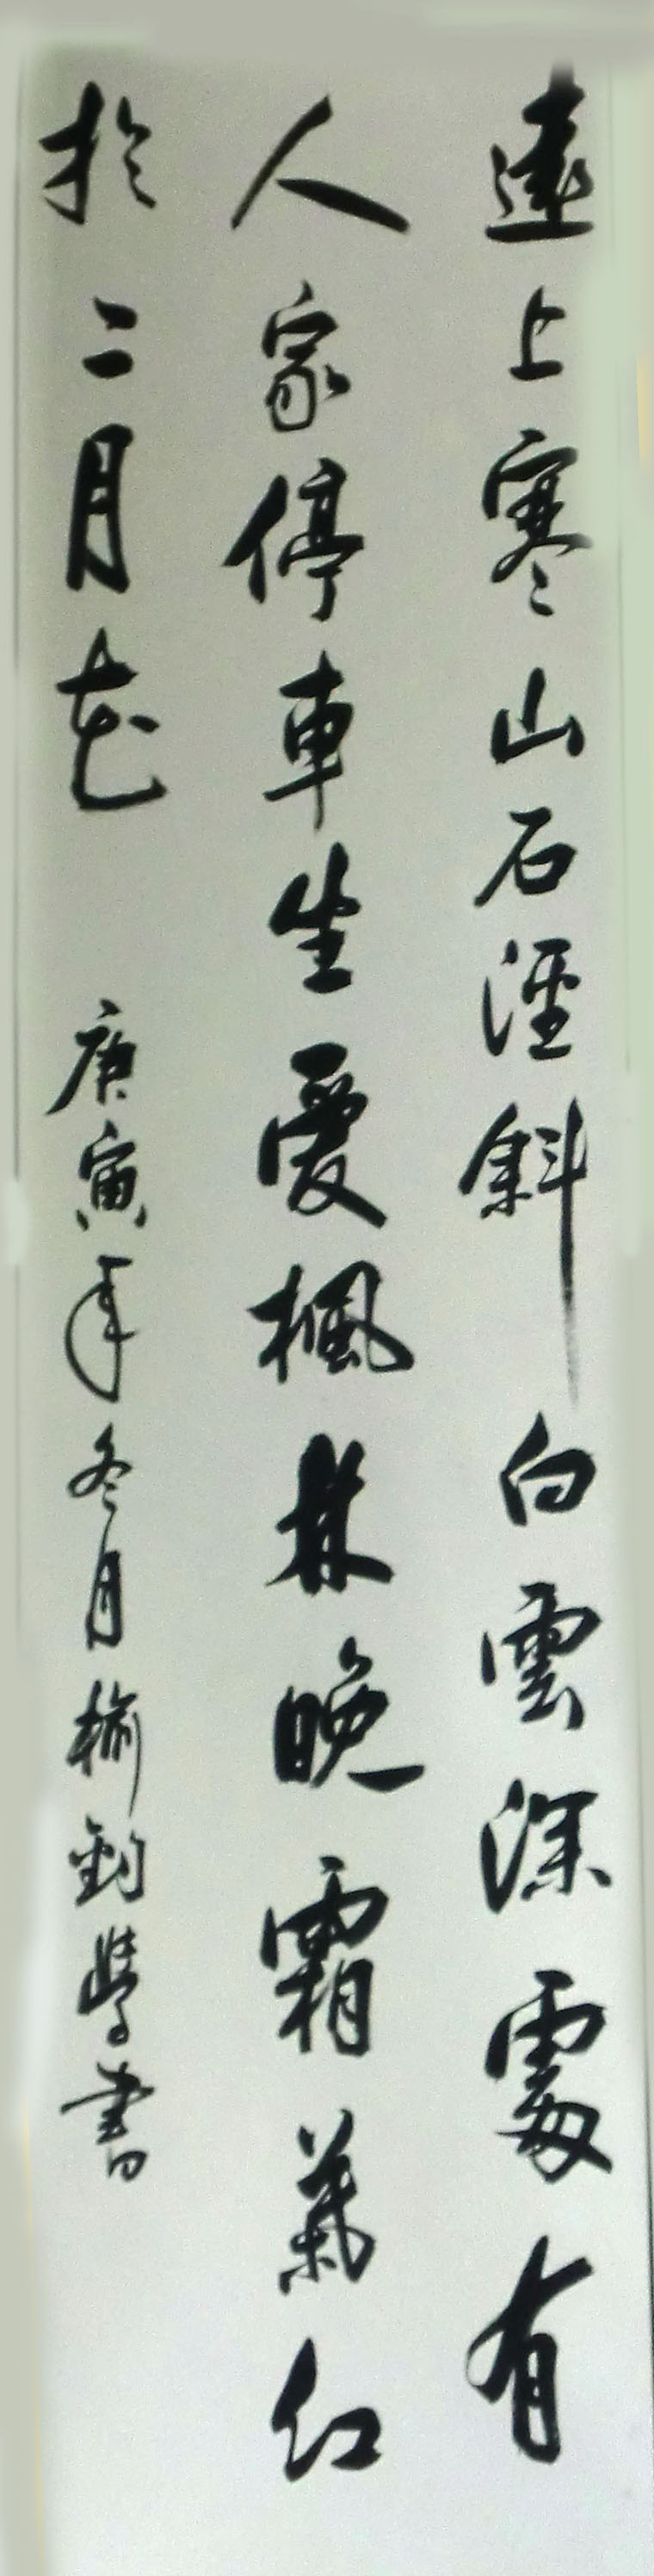 遠上寒山石徑斜白雲深處有
人家停車坐愛楓林晚霜葉紅
於二月花 庚寅年冬月榆學書